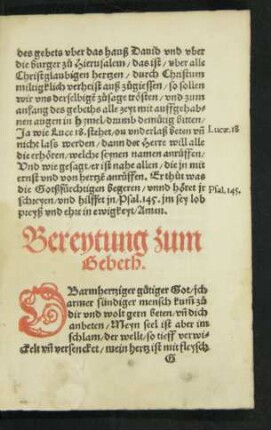 des gebets vber das hauß Dauid vnd vber
die burger zů Hierusalem/ das ist/ vber alle
Christglaubigen hertzen/ durch Christum
miltigklich verheist auß zůgiessen/ so sollen
wir vns derselbigē zůsage trösten/ vnd zum
anfang des gebeths alle zeyt mit auffgehab-
nen augen in hymel/ drumb demütig bitten/
Ja wie Luce 18. stehet/ on vnderlaß beten vñ
Lucæ. 18
nicht lass werden/ dann der Herre will alle
die erhören/ welche seynen namen anrüffen/
Vnd wie gesagt/ er ist nahe allen/ die jn mit
ernst vnd von hertzē anrüffen. Er thůt was
die Gotßfürchtigen begeren/ vnnd höret jr
Psal. 145.
schreyen/ vnd hilfft jn/ Psal. 145. jm sey lob
preyß vnd ehre in ewigkeyt/ Amen.
Bereytung zum
Gebeth.
O Barmhertziger gütiger Got/ jch
armer sündiger mensch kum̄ zů
dir vnd wolt gern beten/ vñ dich
anbeten/ Meyn seel ist aber im
schlam/ der wellt/ so tieff verwi-
ckelt vñ versencket/ mein hertz ist mit fleysch
G